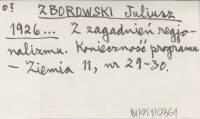 o?
ZBOROWSKI Juliusz
1926... Z zagadnień regjo-
nalizmu. Konieczność programu
- Ziemia 11, nr 29-30.